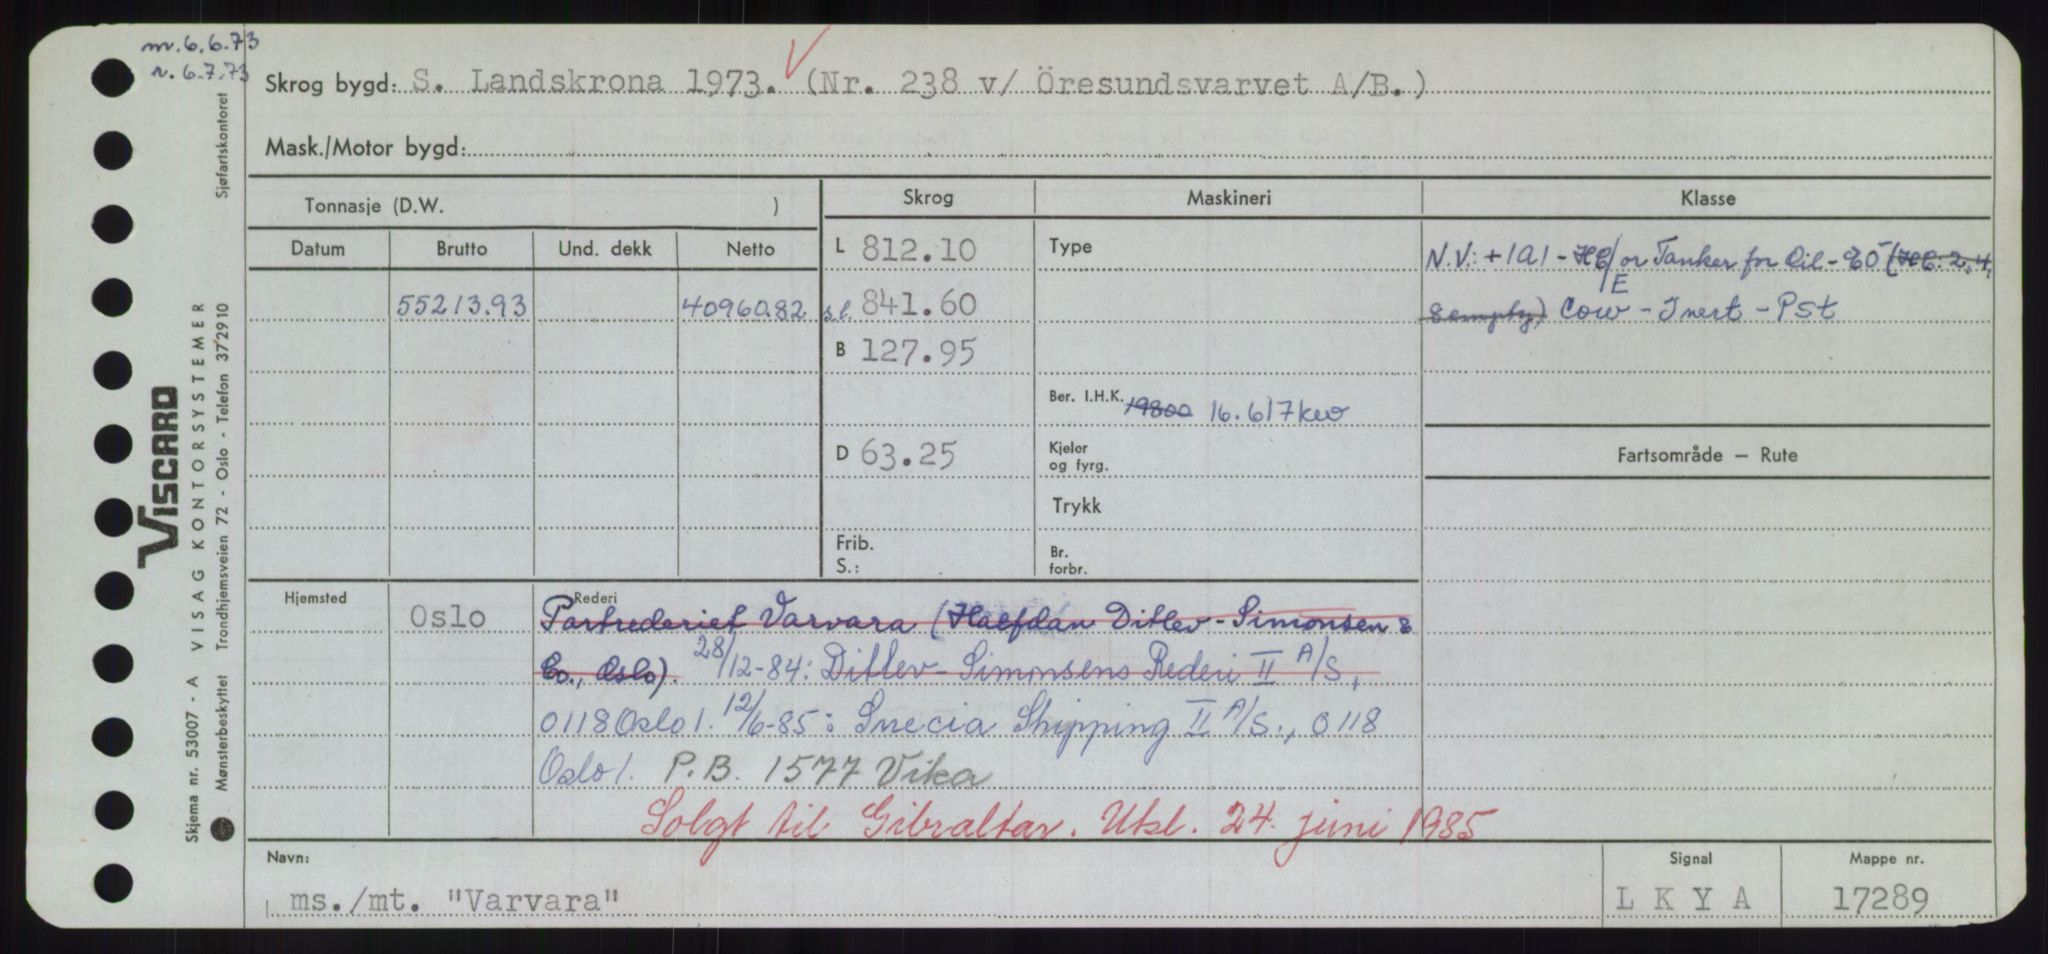 m. 6.6.73
r. 6.7.73
Skrog bygd: S. Landskrona 1973. (Nr. 238 v/ Öresundsvarvet A/B.)
Mask./Motor bygd:
Tonnasje (D.W. )
Skrog
Maskineri
Klasse
Datum
Brutto
Und. dekk
Netto
55213.93
40960.82
L 812.10
s.l. 841.60
B 127.95
D 63.25
Frib.
S.:
Type
Ber. I.H.K. 19800 16.617 kw
Kjeler
og fyrg.
Trykk
Br.
forbr.
N.V.: +1A1 - HC/E or Tanker for Oil - EO (HC. 2, 4,
8 empty) Cow - Inert - Pst
Fartsområde — Rute
Hjemsted
Oslo
Rederi
Partrederiet Varvara (Halfdan Ditlev-Simonsen &
Co., Oslo). 28/12-84: Ditlev-Simonsens Rederi II A/S,
0118 Oslo 1. 12/6-85: Snecia Shipping II A/S., 0118
Oslo 1. P.B. 1577 Vika
Solgt til Gibraltar. Utsl. 24. juni 1985
Navn:
ms./mt. "Varvara"
Signal
L K Y A
Mappe nr.
17289
VISCARD
Skjema nr. 53007 - A VISAG KONTORSYSTEMER
Mønsterbeskyttet Trondhjemsveien 72 - Oslo - Telefon 372910 Sjøfartskontoret